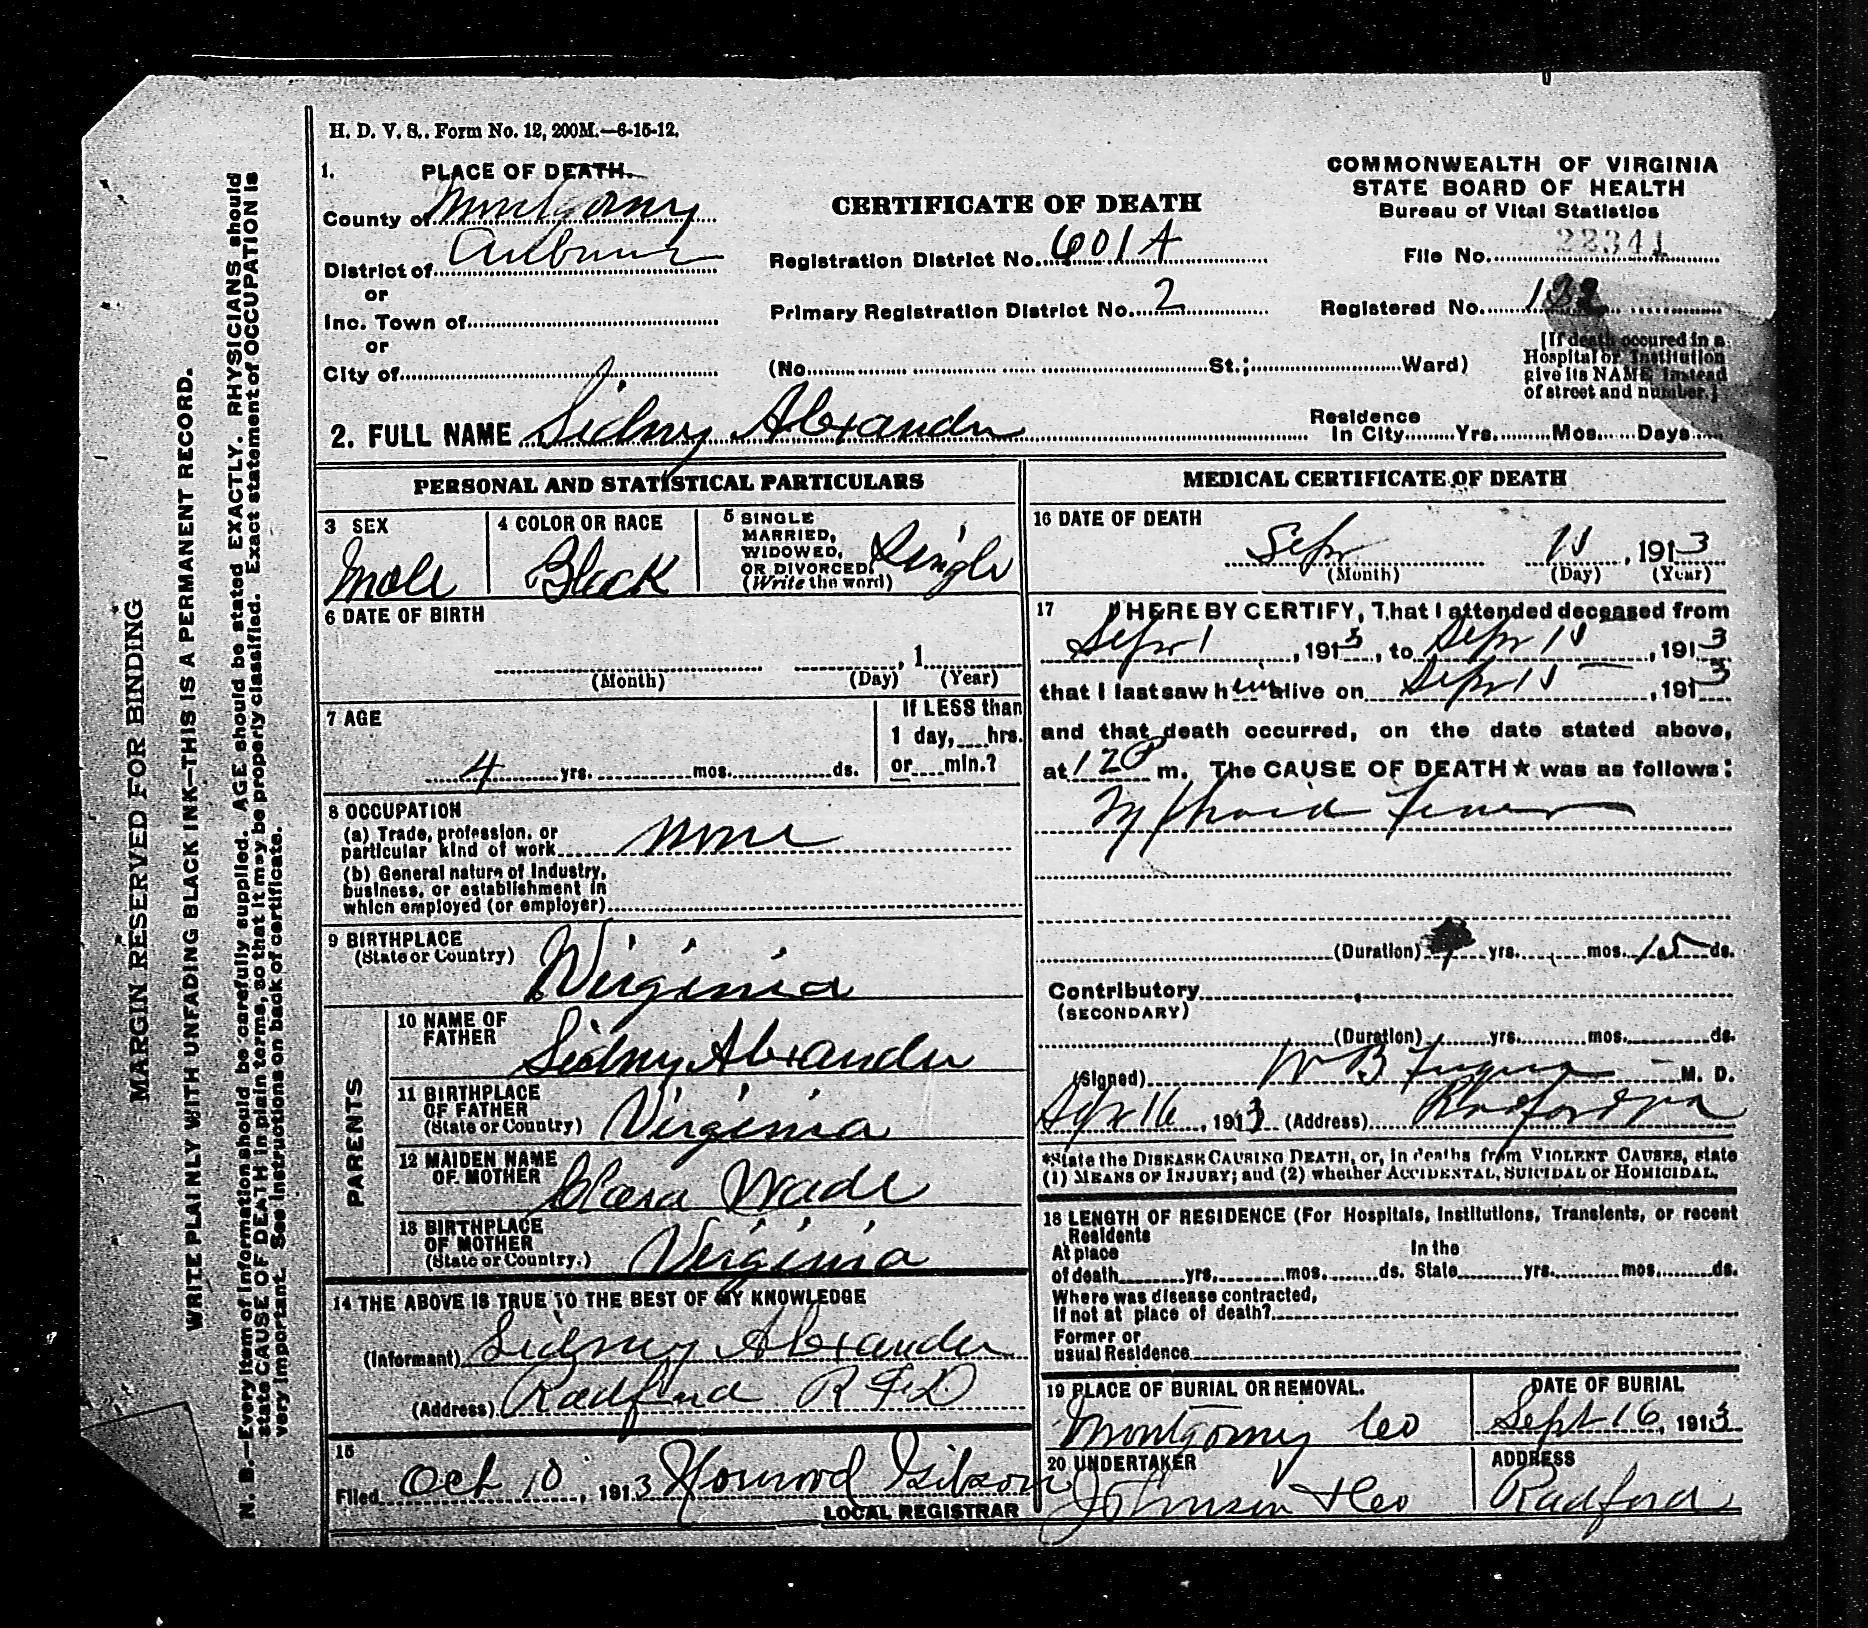 H. D. V. S.. Form No. 12, 200M.—6-15-12.
1. PLACE OF DEATH.
County of Montgomy
District of Auburn
or
Inc. Town of
or
City of
CERTIFICATE OF DEATH
Registration District No. 601A
Primary Registration District No. 2
(No. St.; Ward)
COMMONWEALTH OF VIRGINIA
STATE BOARD OF HEALTH
Bureau of Vital Statistics
File No. 22341
Registered No.
[If death occured in a
Hospital or Institution
give its NAME instead
of street and number.]
2. FULL NAME Sidney Alexander
Residence
In City Yrs. Mos. Days
PERSONAL AND STATISTICAL PARTICULARS
3 SEX
Male
4 COLOR OR RACE
Black
5 SINGLE
MARRIED,
WIDOWED,
OR DIVORCED.
(Write the word)
Single
6 DATE OF BIRTH
, 1
(Month) (Day) (Year)
7 AGE
4 yrs. mos. ds.
If LESS than
1 day, hrs.
or min.?
8 OCCUPATION
(a) Trade, profession, or
particular kind of work None
(b) General nature of Industry,
business, or establishment in
which employed (or employer)
9 BIRTHPLACE
(State or Country) Virginia
PARENTS
10 NAME OF
FATHER Sidney Alexander
11 BIRTHPLACE
OF FATHER
(State or Country) Virginia
12 MAIDEN NAME
OF MOTHER Clara Wade
13 BIRTHPLACE
OF MOTHER
(State or Country.) Virginia
14 THE ABOVE IS TRUE TO THE BEST OF MY KNOWLEDGE
(Informant) Sidney Alexander
(Address) Radford R F D
15
Filed Oct 10, 1913 Howard Gibson
LOCAL REGISTRAR
MEDICAL CERTIFICATE OF DEATH
16 DATE OF DEATH
Sepr 15, 1913
(Month) (Day) (Year)
17 I HEREBY CERTIFY, That I attended deceased from
Sepr 1, 1913, to Sepr 15, 1913
that I last saw him alive on Sepr 15, 1913
and that death occurred, on the date stated above,
at 12 P m. The CAUSE OF DEATH★ was as follows:
Typhoid Fever
(Duration) yrs. mos. 15 ds.
Contributory
(SECONDARY)
(Duration) yrs. mos. ds.
(Signed) W B M. D.
Sepr 16, 1913 (Address) Radford Va
*State the DISEASE CAUSING DEATH, or, in deaths from VIOLENT CAUSES, state
(1) MEANS OF INJURY; and (2) whether ACCIDENTAL, SUICIDAL or HOMICIDAL.
18 LENGTH OF RESIDENCE (For Hospitals, Institutions, Transients, or recent
Residents
At place In the
of death yrs. mos. ds. State yrs. mos. ds.
Where was disease contracted,
if not at place of death?
Former or
usual Residence
19 PLACE OF BURIAL OR REMOVAL.
Montgomy Co
DATE OF BURIAL
Sept 16, 1913
20 UNDERTAKER
Johnson & Co
ADDRESS
Radford
MARGIN RESERVED FOR BINDING
WRITE PLAINLY WITH UNFADING BLACK INK—THIS IS A PERMANENT RECORD.
N. B.—Every item of information should be carefully supplied. AGE should be stated EXACTLY. PHYSICIANS should
state CAUSE OF DEATH in plain terms, so that it may be properly classified. Exact statement of OCCUPATION is
very important. See instructions on back of certificate.